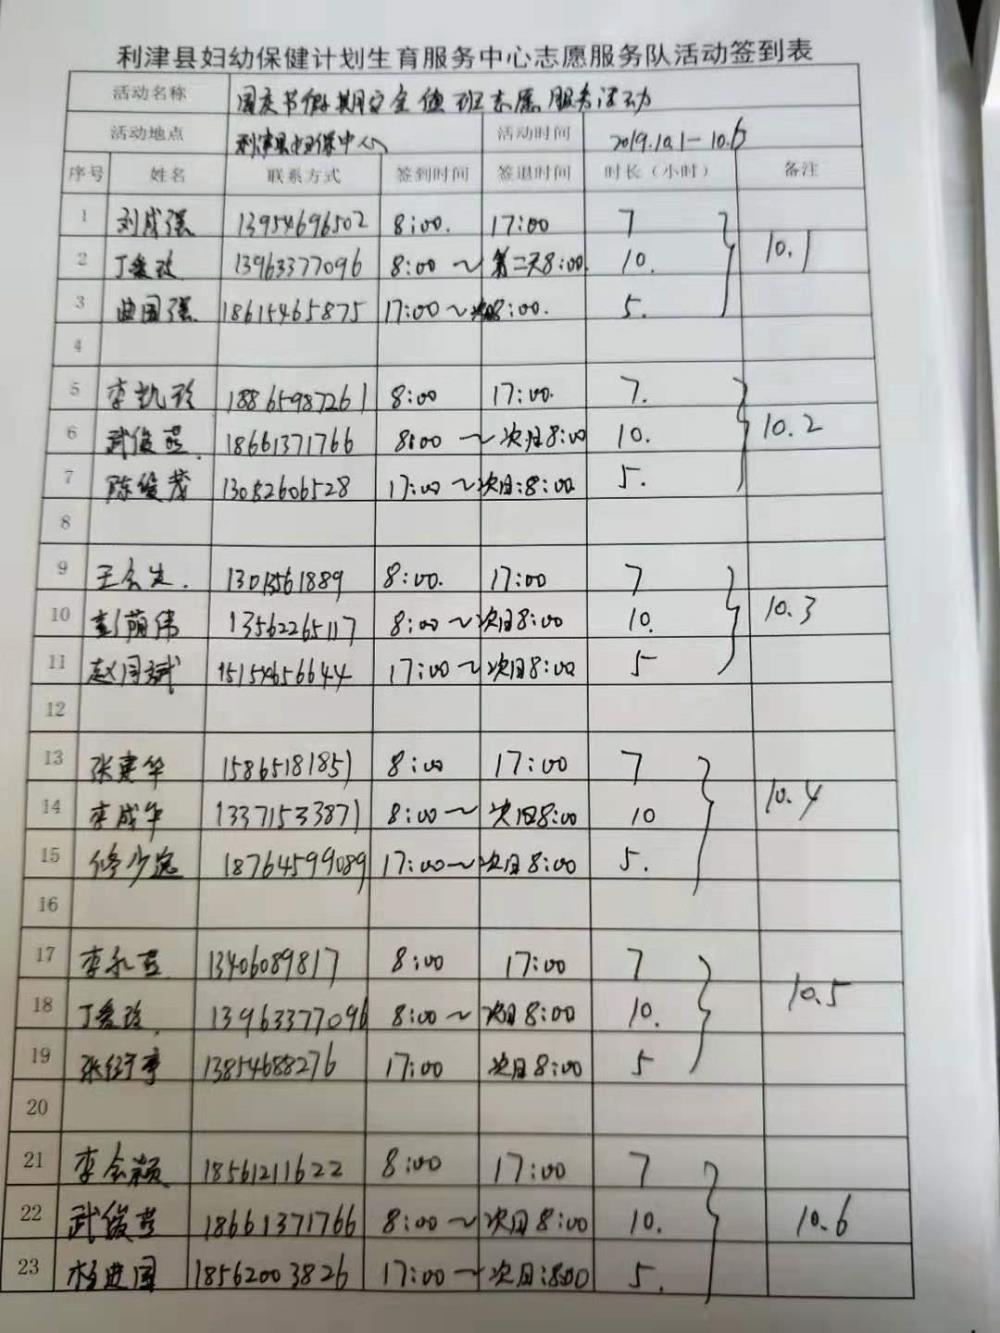 利津县妇幼保健计划生育服务中心志愿服务队活动签到表
活动名称 国庆节假期安全值班志愿服务活动
活动地点 利津县妇保中心 活动时间 2019.10.1-10.6
序号 姓名 联系方式 签到时间 签退时间 时长（小时） 备注
1 刘成强 13954696502 8:00. 17:00 7
2 丁爱玫 13963377096 8:00～ 第二天8:00 10. 10.1
3 曲国强 18615465875 17:00～ 8:00. 5.
4
5 李凯玲 18865987261 8:00 17:00. 7.
6 武俊燕. 18661371766 8:00 ～次日8:00 10. 10.2
7 陈俊茂 13052606528 17:00 ～次日:8:00 5.
8
9 王会 . 8:00. 17:00 7
10 彭萌伟 13562265117 8:00 ～次日8:00 10. 10.3
11 赵同斌 15154656644 17:00 ～次日8:00 5
12
13 张建华 15865181851 8:00 17:00 7
14 李成华 13371533871 8:00～ 次日8:00 10 10.4
15 修少 18764599089 17:00～ 次日8:00 5.
16
17 李永燕 13406089817 8:00 17:00 7
18 丁爱玫. 13963377096 8:00～ 次日8:00 10. 10.5
19 张 亭 13854688276 17:00 次日8:00 5
20
21 李会颖 18561211622 8:00 17:00 7
22 武俊燕 18661371766 8:00 ～次日8:00 10. 10.6
23 杨进国 18562003826 17:00 ～次日:8:00 5.